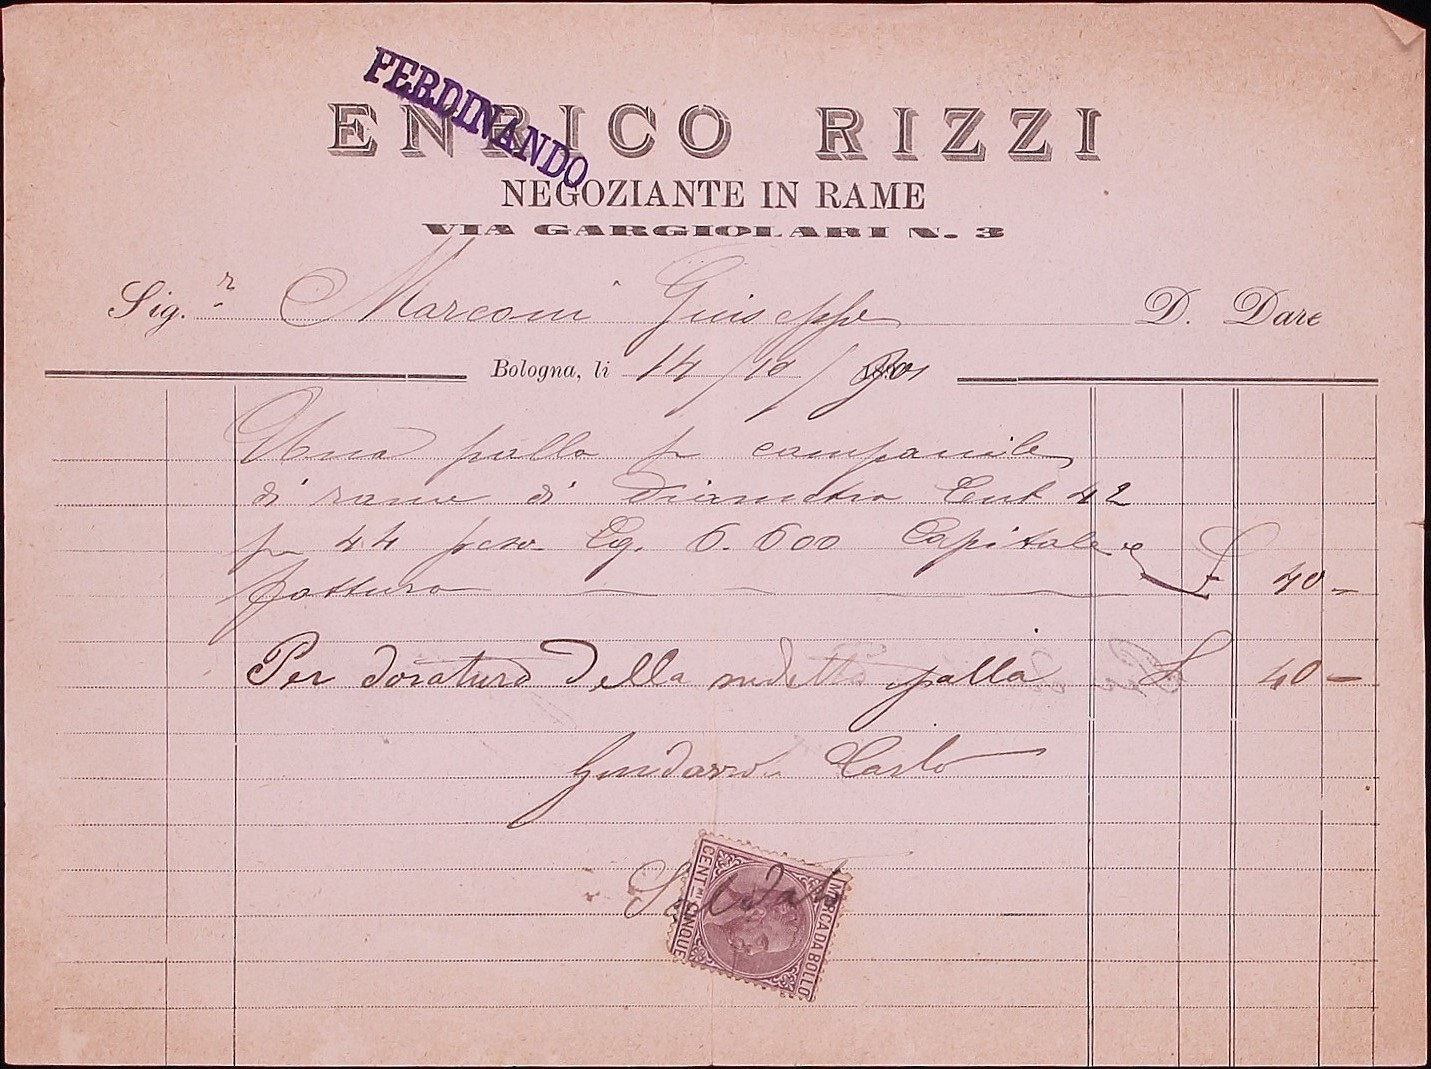 FERDINANDO
ENRICO RIZZI
NEGOZIANTE IN RAME
VIA GARGIOLARI N. 3
Sig.r Marconi Giuseppe D. Dare
Bologna, li 14/10/901
Una palla p campanile
di rame di diametro Cent 42
p 44 peso Cg. 6.600 Capitale e £ 40 -
fattura
Per doratura della sudetta palla £ 40 -
Carlo
Saldato
CENT.MI CINQUE
MARCA DA BOLLO